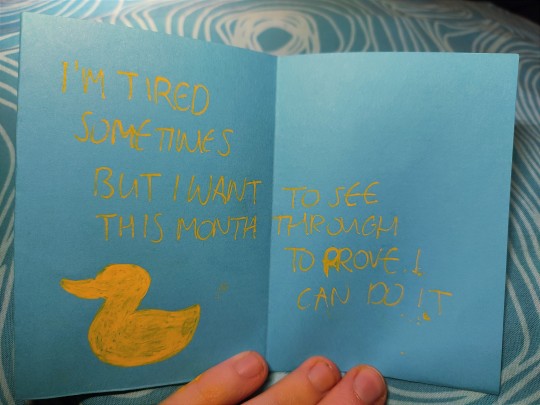 I'M TIRED
SOMETIMES
BUT I WANT TO SEE
THIS MONTH THROUGH
TO PROVE I
CAN DO IT